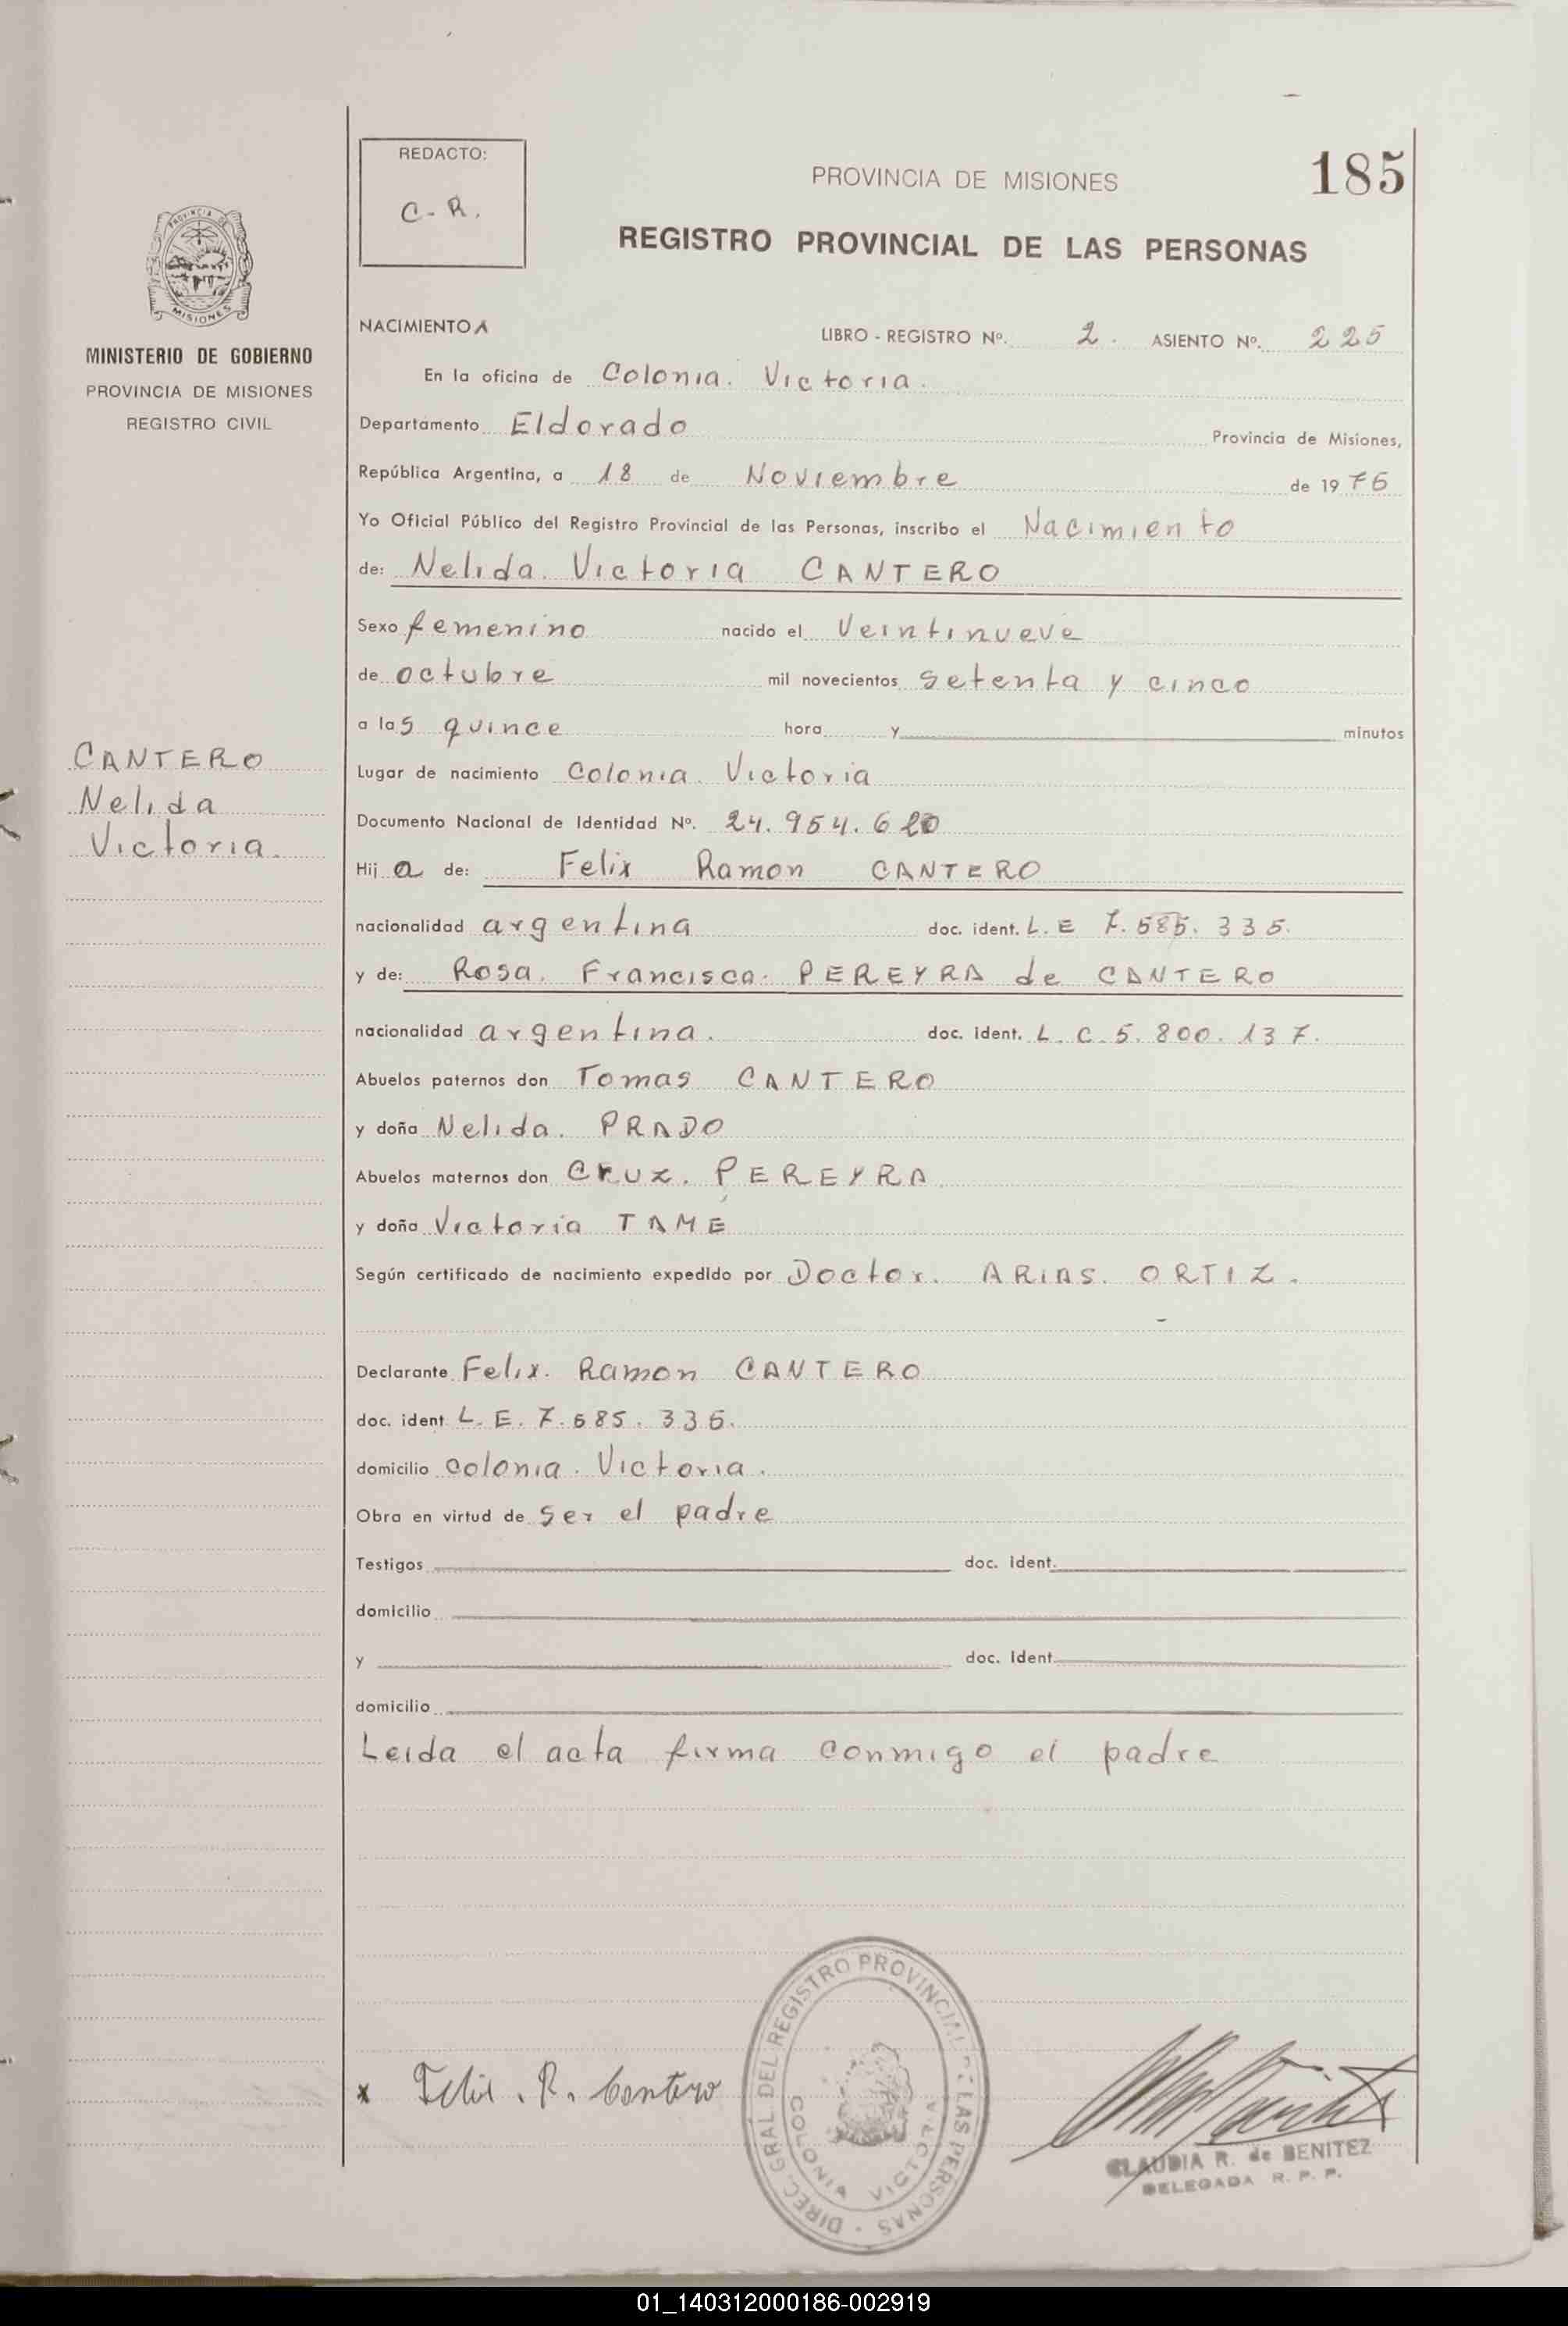 REDACTO:
C-R.
PROVINCIA DE MISIONES
185
REGISTRO PROVINCIAL DE LAS PERSONAS
PROVINCIA DE
MISIONES
MINISTERIO DE GOBIERNO
PROVINCIA DE MISIONES
REGISTRO CIVIL
NACIMIENTOA LIBRO - REGISTRO Nº. 2. ASIENTO Nº. 225
En la oficina de Colonia. Victoria.
Departamento Eldorado Provincia de Misiones,
República Argentina, a 18 de Noviembre de 19
Yo Oficial Público del Registro Provincial de las Personas, inscribo el Nacimiento
de: Nelida Victoria CANTERO
Sexo femenino nacido el Veintinueve
de octubre mil novecientos setenta y cinco
a las quince hora y minutos
CANTERO
Nelida
Victoria.
Lugar de nacimiento Colonia Victoria
Documento Nacional de Identidad Nº.
Hija de: Felix Ramon CANTERO
nacionalidad argentina doc. ident. L.E 7.585.335.
y de: Rosa. Francisca PEREYRA de CANTERO
nacionalidad argentina. doc. ident. L.C.5.800.137.
Abuelos paternos don Tomas CANTERO
y doña Nelida. PRADO
Abuelos maternos don CRUZ. PEREYRA
y doña Victoria TAME
Según certificado de nacimiento expedido por Doctor. ARIAS. ORTIZ.
Declarante Felix. Ramon CANTERO
doc. ident L.E.
domicilio colonia. Victoria.
Obra en virtud de ser el padre
Testigos doc. ident.
domicilio
y doc. Ident
domicilio
Leida el acta firma conmigo el padre
x Felix. R. Cantero
DIREC. GRAL. DEL REGISTRO PROVINCIAL DE LAS PERSONAS
COLONIA VICTORIA
CLAUDIA R. de BENITEZ
DELEGADA R. P. P.
01_140312000186-002919